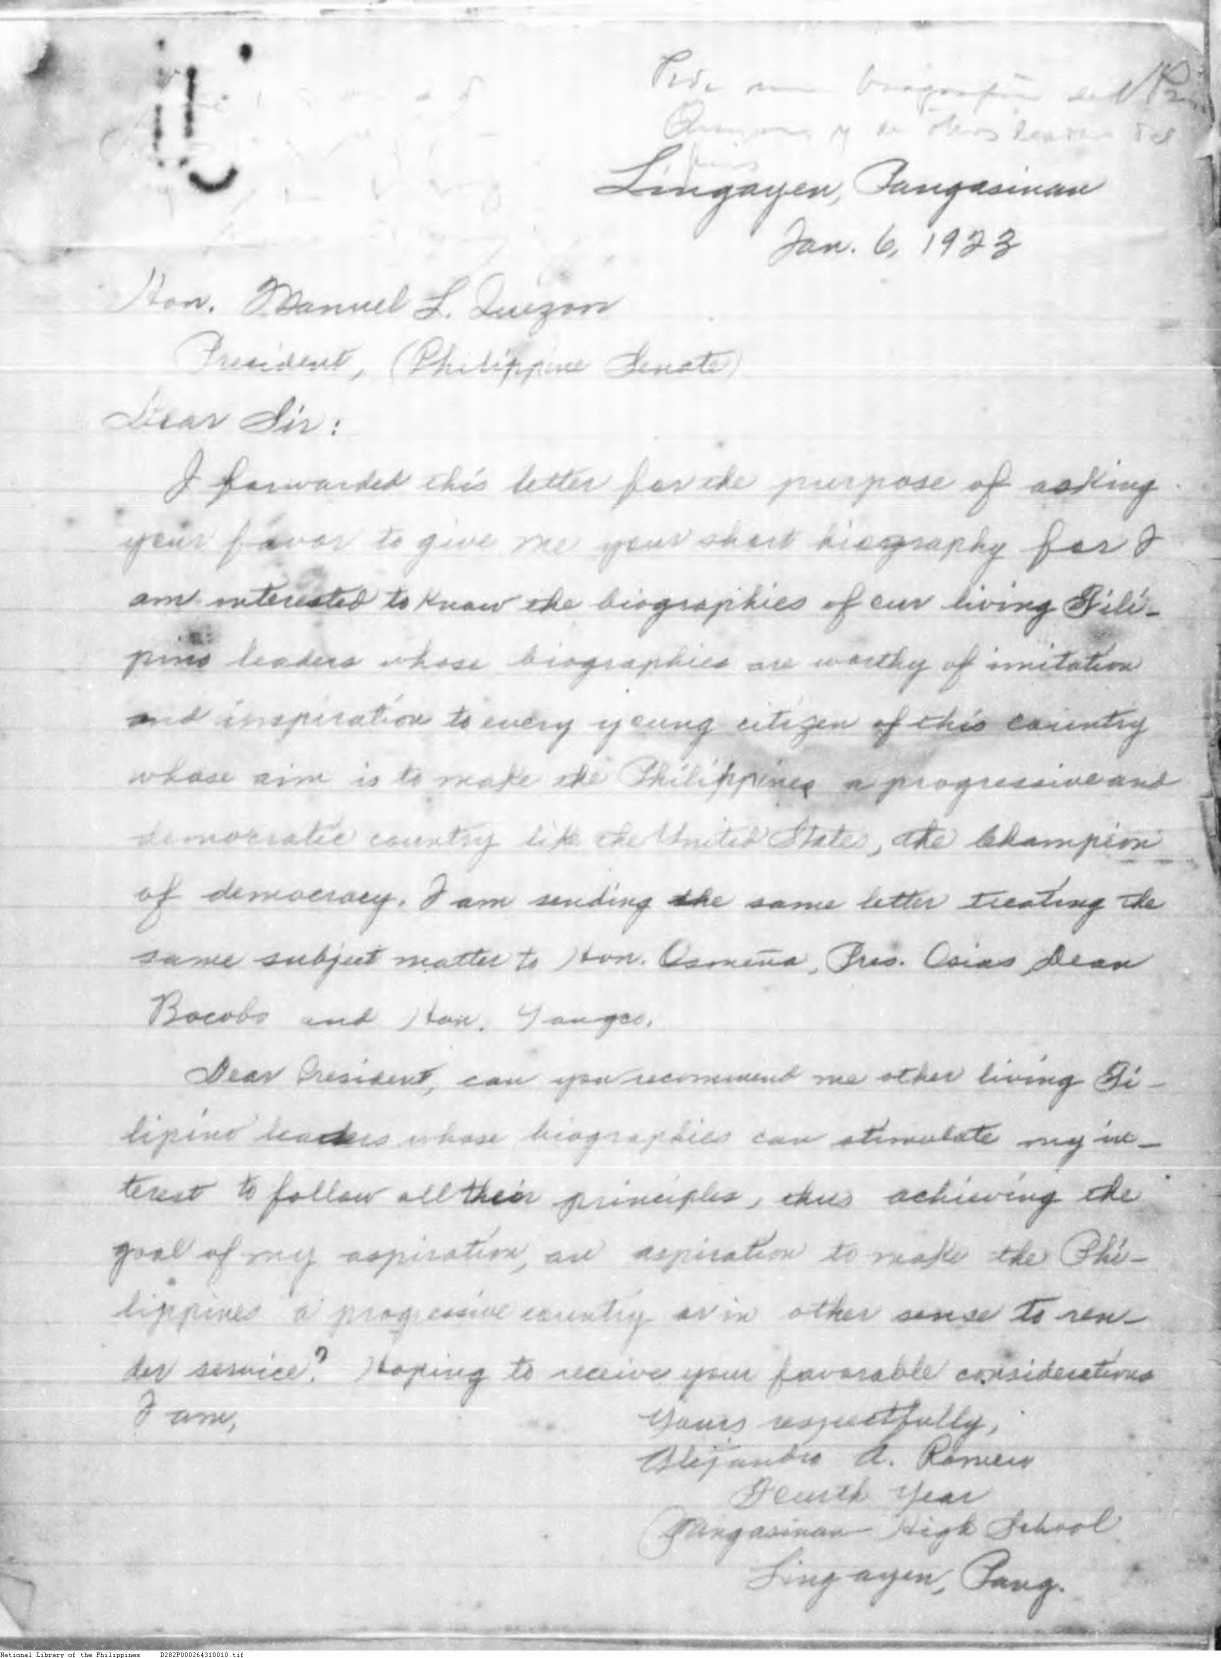 Pide una biografía del Pres.
Quezon y de otros leaders del
país
Lingayen, Pangasinan
Jan. 6, 1923
Hon. Manuel L. Quezon
President, (Philippine Senate)
Dear Sir:
I forwarded this letter for the purpose of asking
your favor to give me your short biography for I
am interested to know the biographies of our living Fili-
pino leaders whose biographies are worthy of imitation
and inspiration to every young citizen of this country
whose aim is to make the Philippines a progressive and
democratic country like the United States, the Champion
of democracy. I am sending the same letter treating the
same subject matter to Hon. Osmeña, Pres. Osias, Dean
Bocobo and Hon. Yangco.
Dear President, can you recommend me other living Fi-
lipino leaders whose biographies can stimulate my in-
terest to follow all their principles, thus achieving the
goal of my aspiration, an aspiration to make the Phi-
lippines a progressive country or in other sense to ren-
der service? Hoping to receive your favorable considerations
I am,
Yours respectfully,
Alejandro A. Romero
Fourth Year
Pangasinan High School
Lingayen, Pang.
National Library of the Philippines D282P000264310010.tif